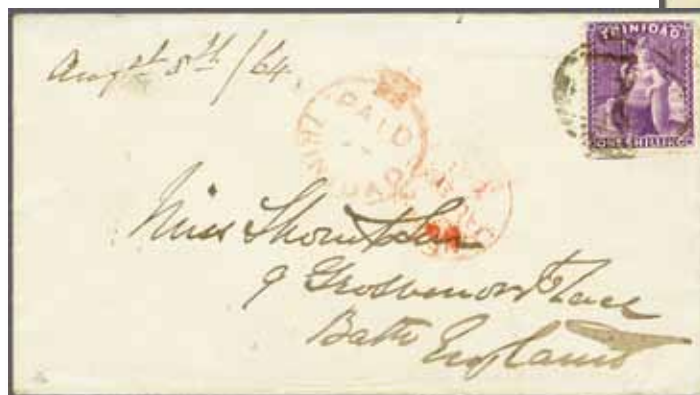 Augst 5th/64
TRINIDAD
ONE SHILLING
PAID
TRINIDAD
Miss
9 Grosvenor Place
Bath
England